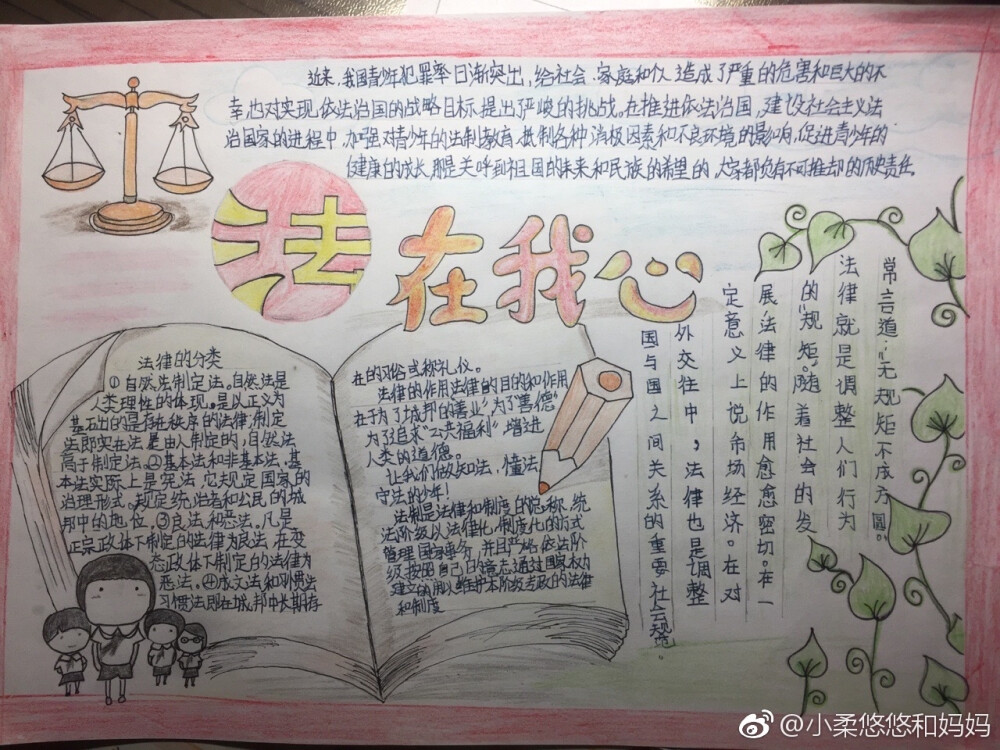 近来,我国青少年犯罪率日渐突出,给社会、家庭和个人造成了严重的危害和巨大的不
幸也对实现依法治国的战略目标提出了严峻的挑战。在推进依法治国,建设社会主义法
治国家的进程中,加强对青少年的法制教育,抵制各种消极因素和不良环境的影响,促进青少年的
健康的成长,那是关呼到祖国的未来和民族的希望的,大家都负有不可推却的历史责任。
法在我心
法律的分类
①自然法制定法。自然法是
人类理性的体现。是以正义为
基石出的是存在秩序的法律,制定
法即实在法是由人制定的,自然法
高于制定法。②基本法和非基本法,基
本法实际上是宪法,它规定国家的
治理形式。规定统治者和公民的城
邦中的地位。③良法和恶法。凡是
正宗政体下制定的法律为良法,在变
态政体下制定的法律为
恶法。④成文法和习惯法
习惯法则在城邦中长期存
在的习俗或称礼仪。
法律的作用法律的目的和作用
在于为了城邦的善业”为了“善德”
为了追求“公共福利”增进
人类的道德。
让我们做知法,懂法
守法的少年!
法制是法律和制度的总称,统
法阶级以法律化,制度化的方式
管理国家事务,并且严格依法阶
级按照自己的意志通过国家权力
建立的用以维护本阶级专政的法律
和制度
常言道:“无规矩不成方圆。
法律就是调整人们行为
的“规矩。随着社会的发
展,法律的作用愈愈密切。在一
定意义上说市场经济。在对
外交往中,法律也是调整
国与国之间关系的重要社会规范。
@小柔悠悠和妈妈